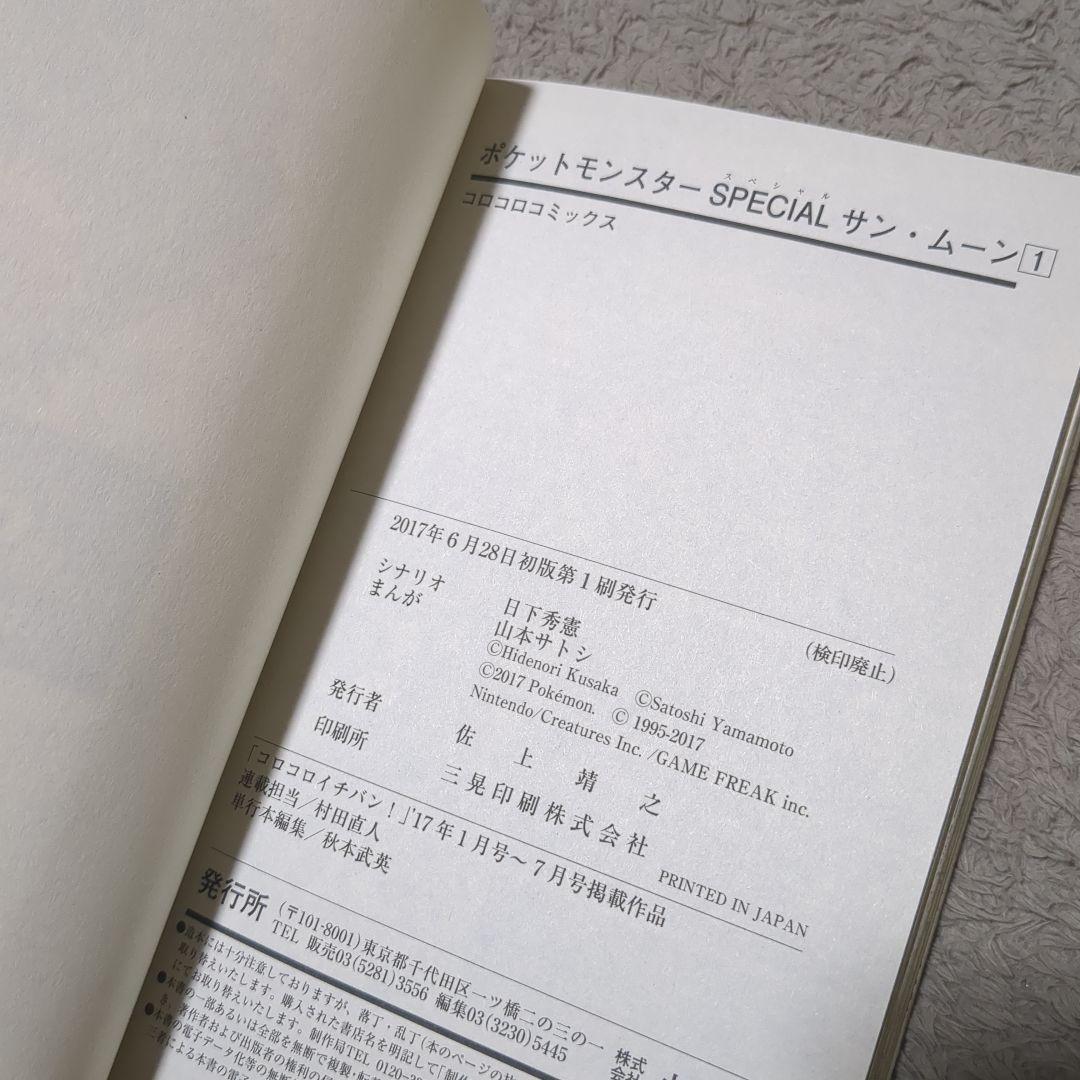 ポケットモンスター SPECIAL サン・ムーン 1
スペシャル
コロコロコミックス
2017年6月28日初版第1刷発行
(検印廃止)
シナリオ 日下秀憲
まんが 山本サトシ
©Hidenori Kusaka ©Satoshi Yamamoto
©2017 Pokémon. © 1995-2017
Nintendo/Creatures Inc. /GAME FREAK inc.
発行者 佐上靖之
印刷所 三晃印刷株式会社
PRINTED IN JAPAN
「コロコロイチバン！」'17年1月号～7月号掲載作品
連載担当／村田直人
単行本編集／秋本武英
発行所 (〒101-8001)東京都千代田区一ツ橋二の三の一
TEL 販売03(5281)3556 編集03(3230)5445
株式
会社
●造本には十分注意しておりますが、落丁・乱丁(本のページの
取り替えいたします。購入された書店名を明記して「制作
にてお取り替えいたします。制作局TEL 0120-
●本書の一部あるいは全部を無断で複製・転
き、著作者および出版者の権利の
●本書の電子データ化等の無断
三者による本書の電子